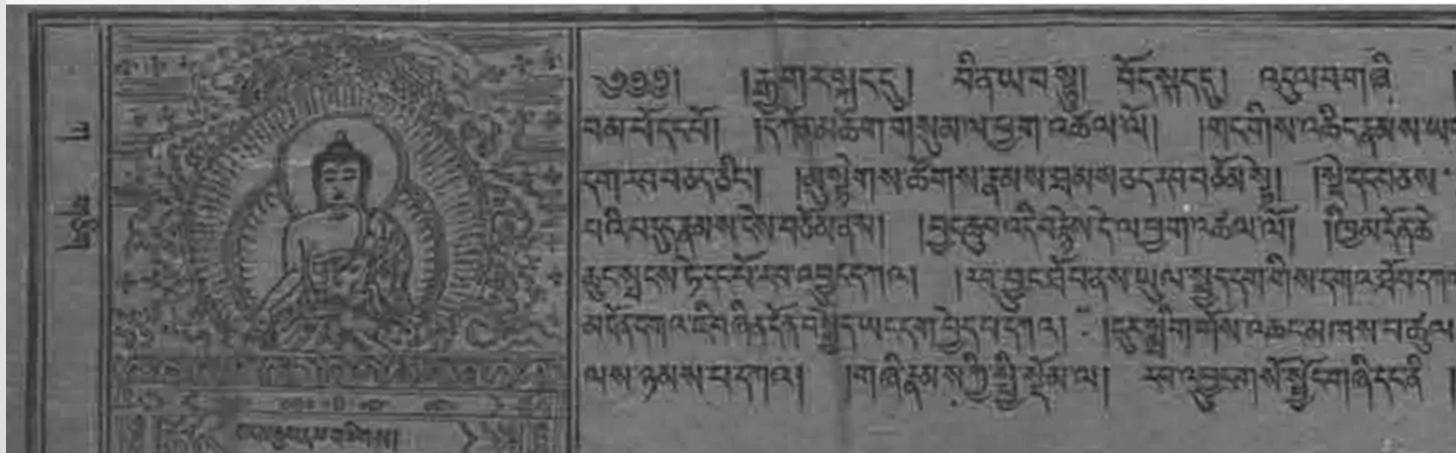 ཀ གཅིག
༄༅༅། །རྒྱ་གར་སྐད་དུ། བི་ན་ཡ་བ་སྟུ། བོད་སྐད་དུ། འདུལ་བ་གཞི །
བམ་པོ་དང་པོ། །དཀོན་མཆོག་གསུམ་ལ་ཕྱག་འཚལ་ལོ། །གང་གིས་འཆིང་རྣམས་ཡ
དག་རབ་བཅད་ཅིང་། །མུ་སྟེགས་ཚོགས་རྣམས་ཐམས་ཅད་རབ་བཅོམ་སྟེ། །སྡེ་དང་བཅས་
པའི་བདུད་རྣམས་ངེས་བཅོམ་ནས། །བྱང་ཆུབ་འདི་བརྙེས་དེ་ལ་ཕྱག་འཚལ་ལོ། །ཁྱིམ་དོན་ཆེ
ཆུང་སྤངས་ཏེ་དང་པོ་རབ་འབྱུང་དཀའ། །རབ་བྱུང་ཐོབ་ནས་ཡུལ་སྤྱད་དག་གིས་དགའ་ཐོབ་དཀ
མངོན་དགའ་ཇི་བཞིན་དོན་བསྐྱེད་ཡང་དག་བྱེད་པ་དཀའ། །ངུར་སྨྲིག་གོས་འཆང་མཁས་པ་ཚུལ
ལས་ཉམས་པ་དཀའ། །གཞི་རྣམས་ཀྱི་སྤྱི་སྡོམ་ལ། རབ་འབྱུང་གསོ་སྦྱོང་གཞི་དང་ནི །